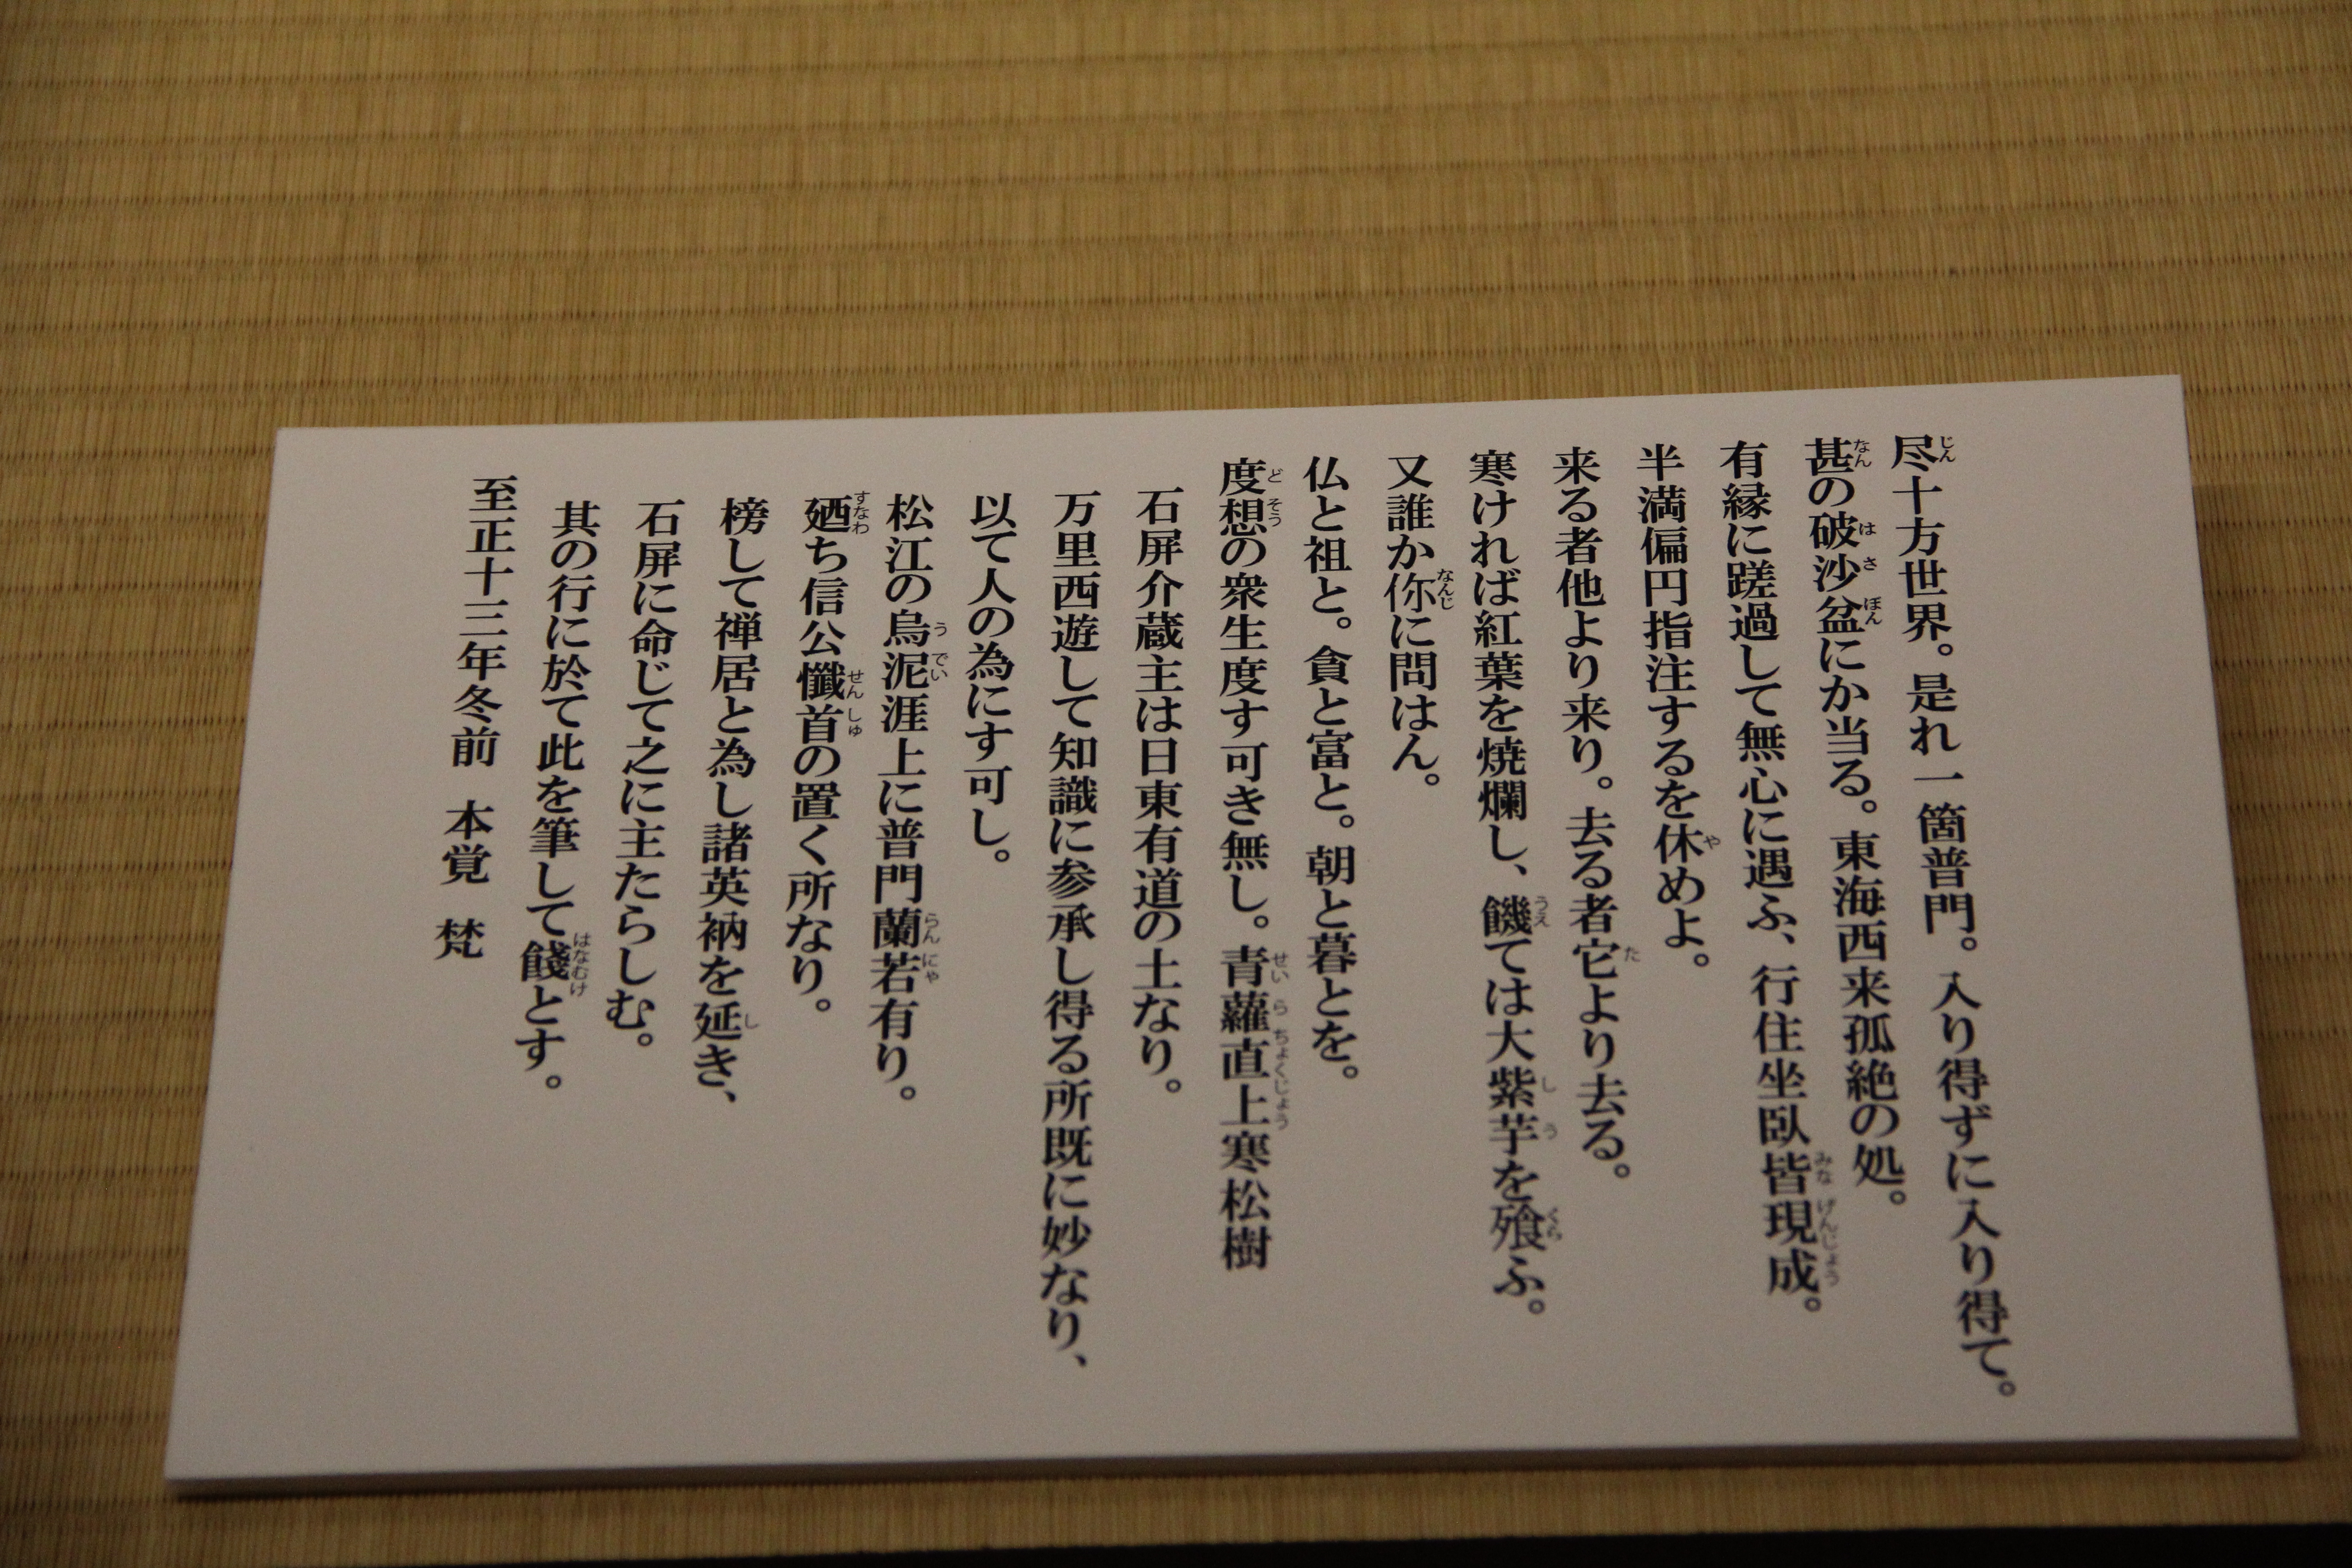 尽十方世界。是れ一箇普門。入り得ずに入り得て。
甚の破沙盆にか当る。東海西来孤絶の処。
有縁に蹉過して無心に遇ふ、行住坐臥皆現成。
半満偏円指注するを休めよ。
来る者他より来り。去る者它より去る。
寒ければ紅葉を焼爛し、饑ては大紫芋を飡ふ。
又誰か伱に問はん。
仏と祖と。貪と富と。朝と暮とを。
度想の衆生度す可き無し。青蘿直上寒松樹
石屏介蔵主は日東有道の士なり。
万里西遊して知識に参承し得る所既に妙なり、
以て人の為にす可し。
松江の烏泥涯上に普門蘭若有り。
廼ち信公懺首の置く所なり。
榜して禅居と為し諸英衲を延き、
石屏に命じて之に主たらしむ。
其の行に於て此を筆して餞とす。
至正十三年冬前　本覚　梵